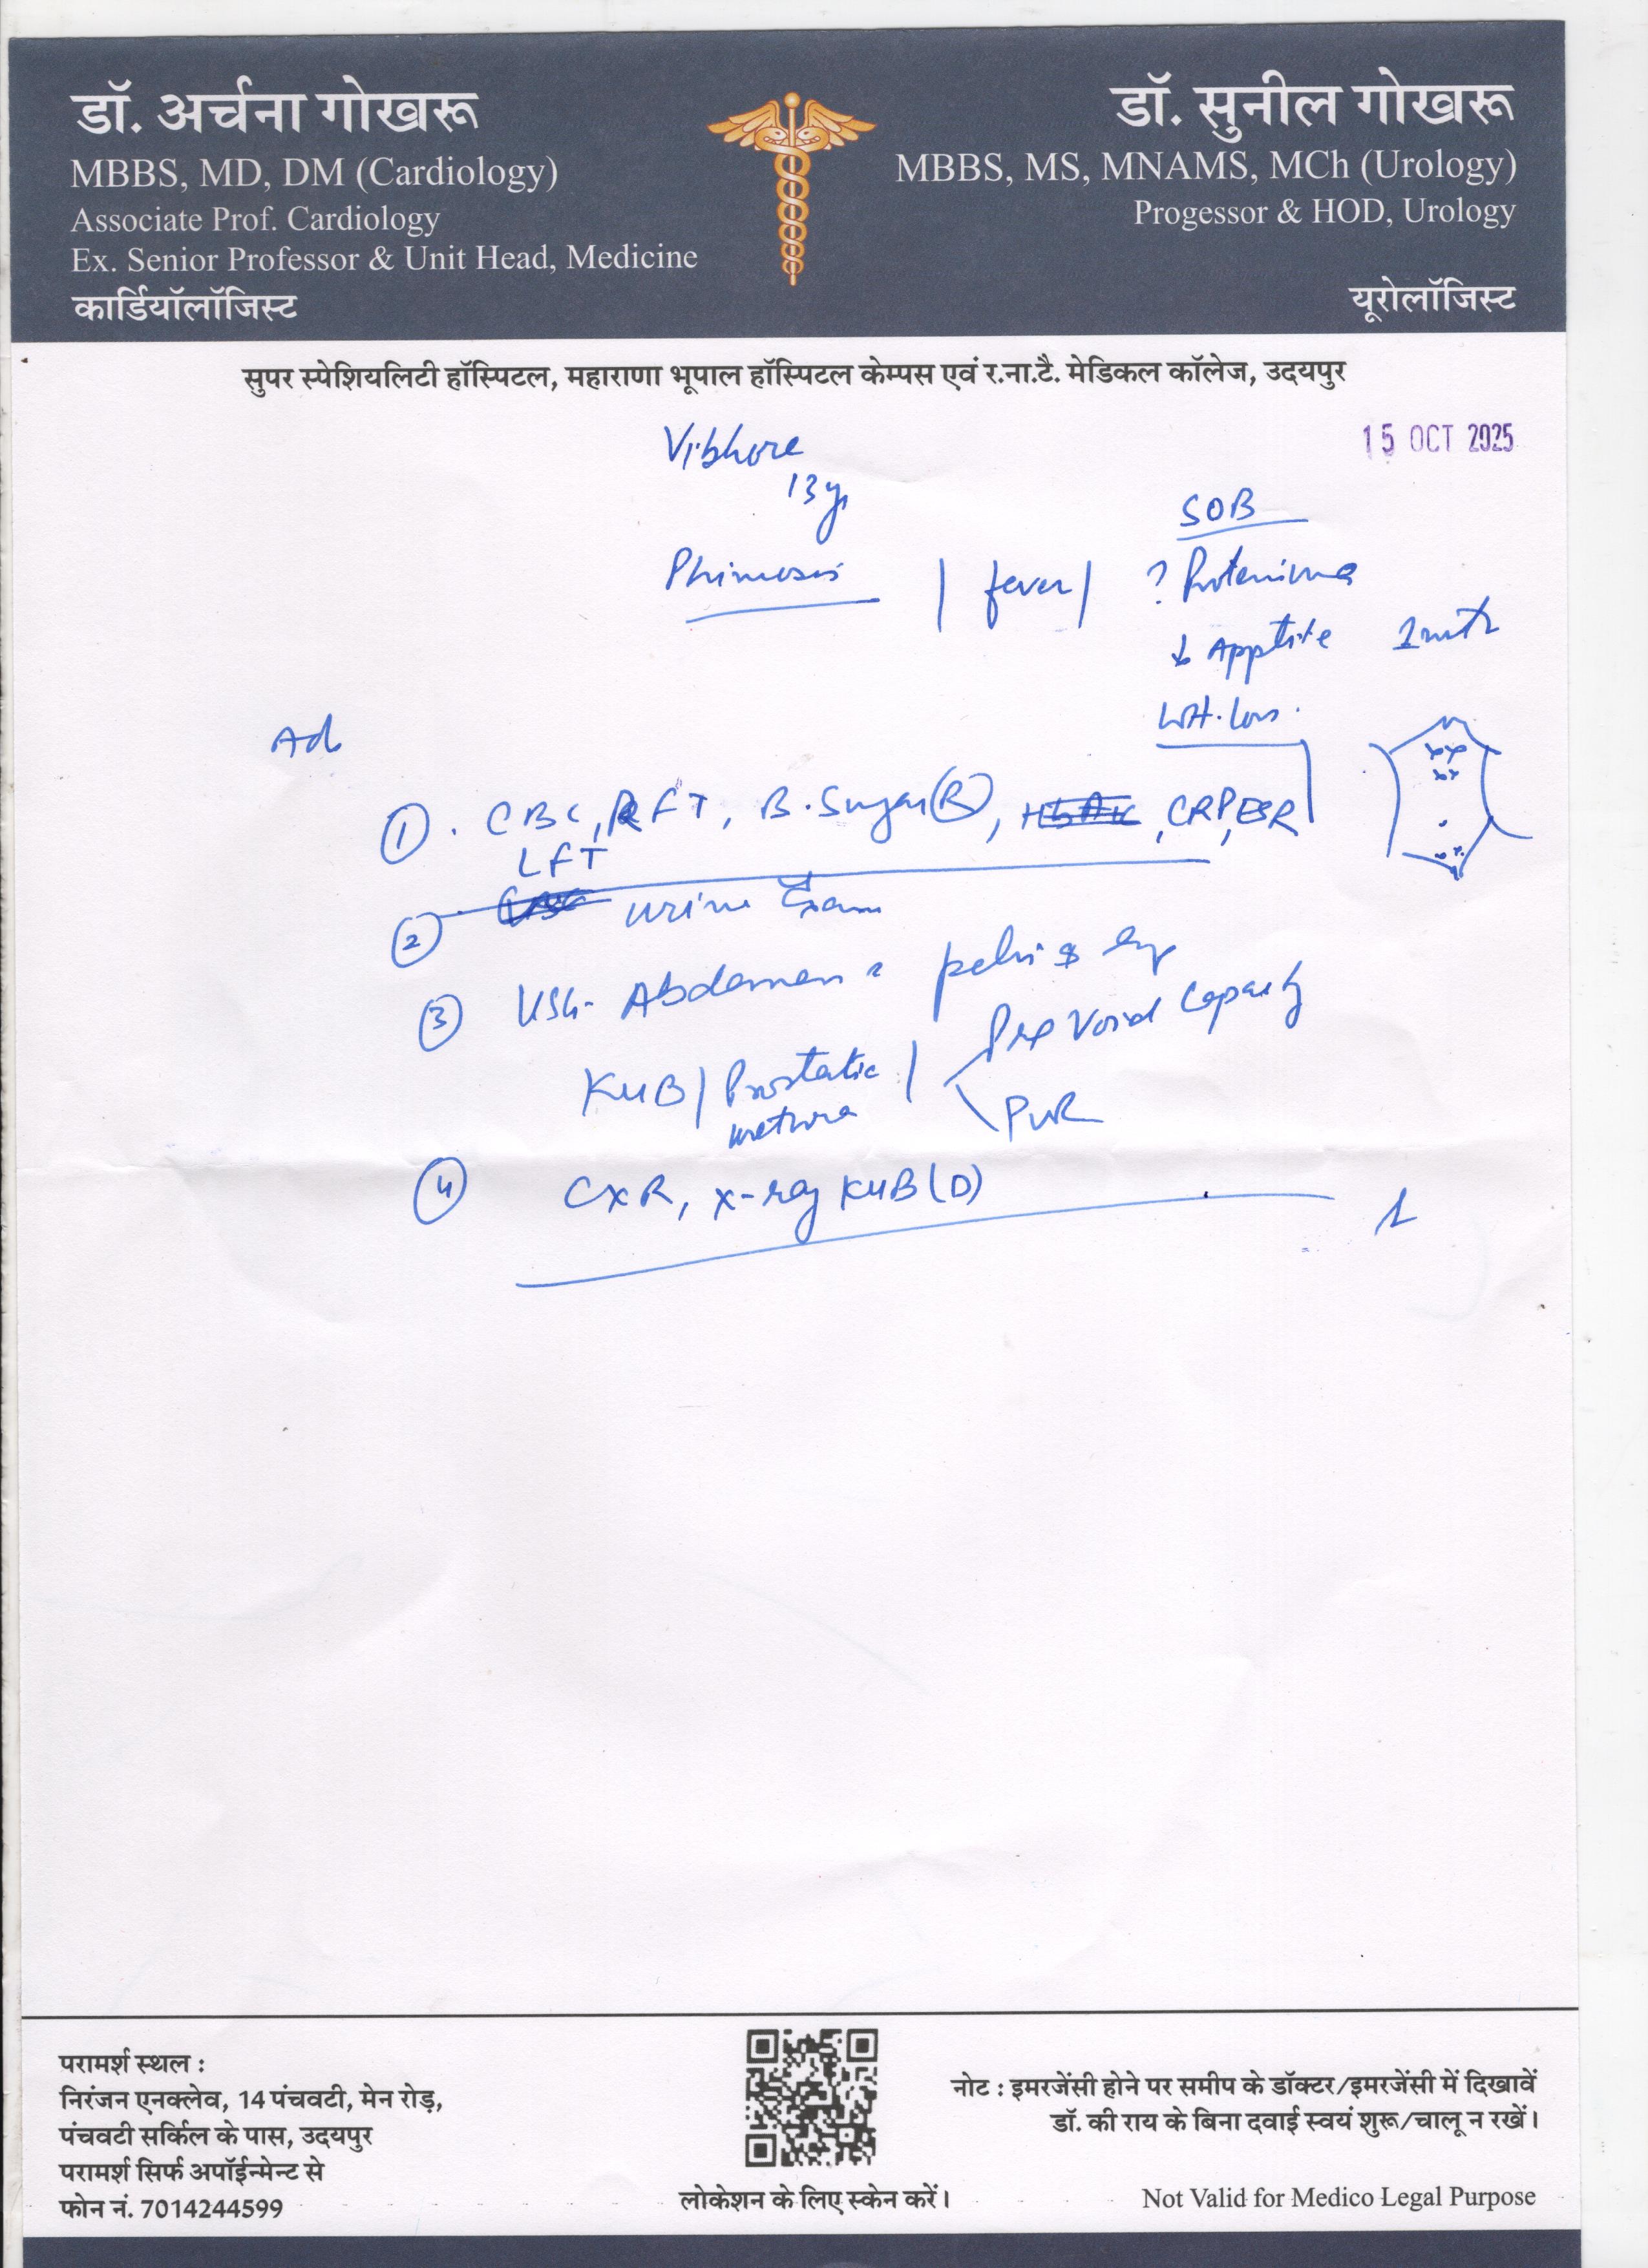 डॉ. अर्चना गोखरू
MBBS, MD, DM (Cardiology)
Associate Prof. Cardiology
Ex. Senior Professor & Unit Head, Medicine
कार्डियॉलॉजिस्ट
डॉ. सुनील गोखरू
MBBS, MS, MNAMS, MCh (Urology)
Progessor & HOD, Urology
यूरोलॉजिस्ट
सुपर स्पेशियलिटी हॉस्पिटल, महाराणा भूपाल हॉस्पिटल केम्पस एवं र.ना.टै. मेडिकल कॉलेज, उदयपुर
15 OCT 2025
Vibhore
13 yr
SOB
Phimosis | fever |
↓ Apptite
Wt. loss.
Ad
① . CBC, RFT, B. Sugar (R), , CRP, ESR
LFT
② Urine Exam
③ USG- Abdomen
KUB | Prostatic urethra | Pre Void Capacity
PVR
④ CXR, X-ray KUB (D)
परामर्श स्थल :
निरंजन एनक्लेव, 14 पंचवटी, मेन रोड़,
पंचवटी सर्किल के पास, उदयपुर
परामर्श सिर्फ अपॉईन्मेन्ट से
फोन नं. 7014244599
लोकेशन के लिए स्केन करें।
नोट : इमरजेंसी होने पर समीप के डॉक्टर/इमरजेंसी में दिखावें
डॉ. की राय के बिना दवाई स्वयं शुरू/चालू न रखें।
Not Valid for Medico Legal Purpose